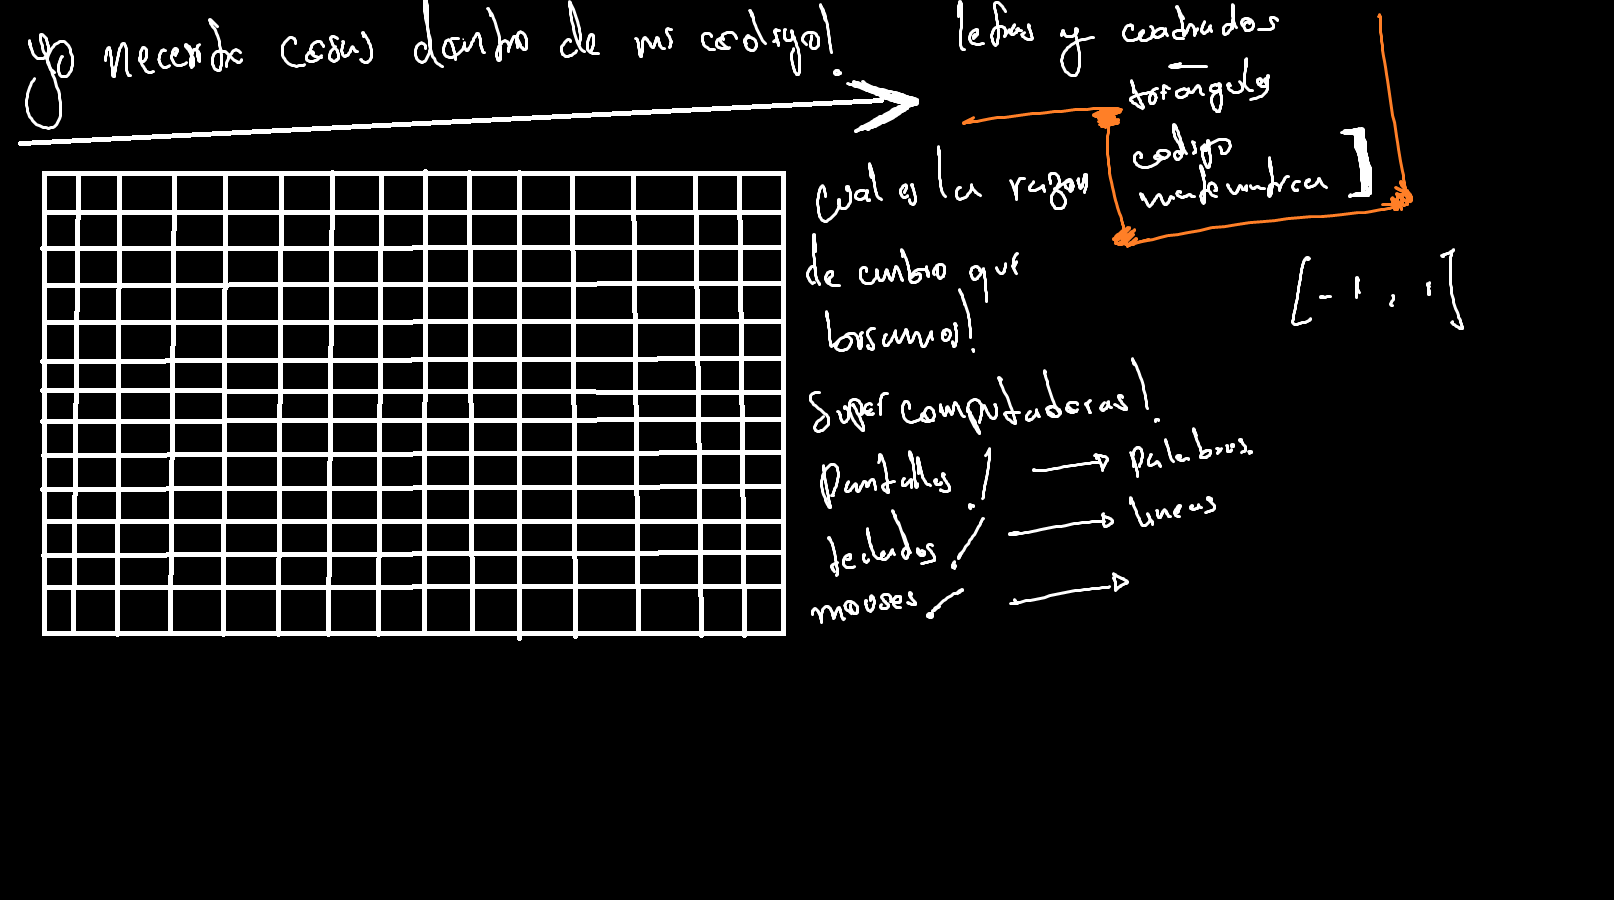 yo necesito cosas dentro de mi codigo!
letras y cuadrados
triangulos
codigo
matematica ]
cual es la razon
de cambio que
buscamos!
[-1, 1]
Super computadoras!
Pantallas! → palabras
teclados! → lineas
mouses! →